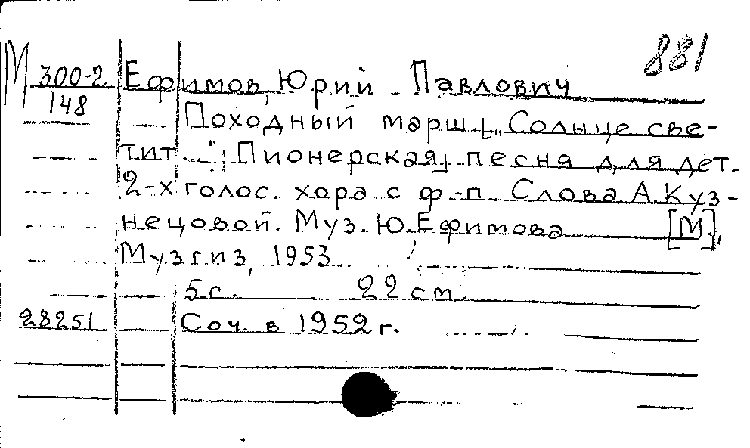 881
М 300-2 Ефимов, Юрий Павлович
148 Походный марш. „Солнце све-
тит..." Пионерская песня для дет.
2-х голос. хора с ф.-п. Слова А. Куз-
нецовой. Муз. Ю. Ефимова [М],
Музгиз, 1953
5 с. 22 см.
28251 Соч. в 1952 г.